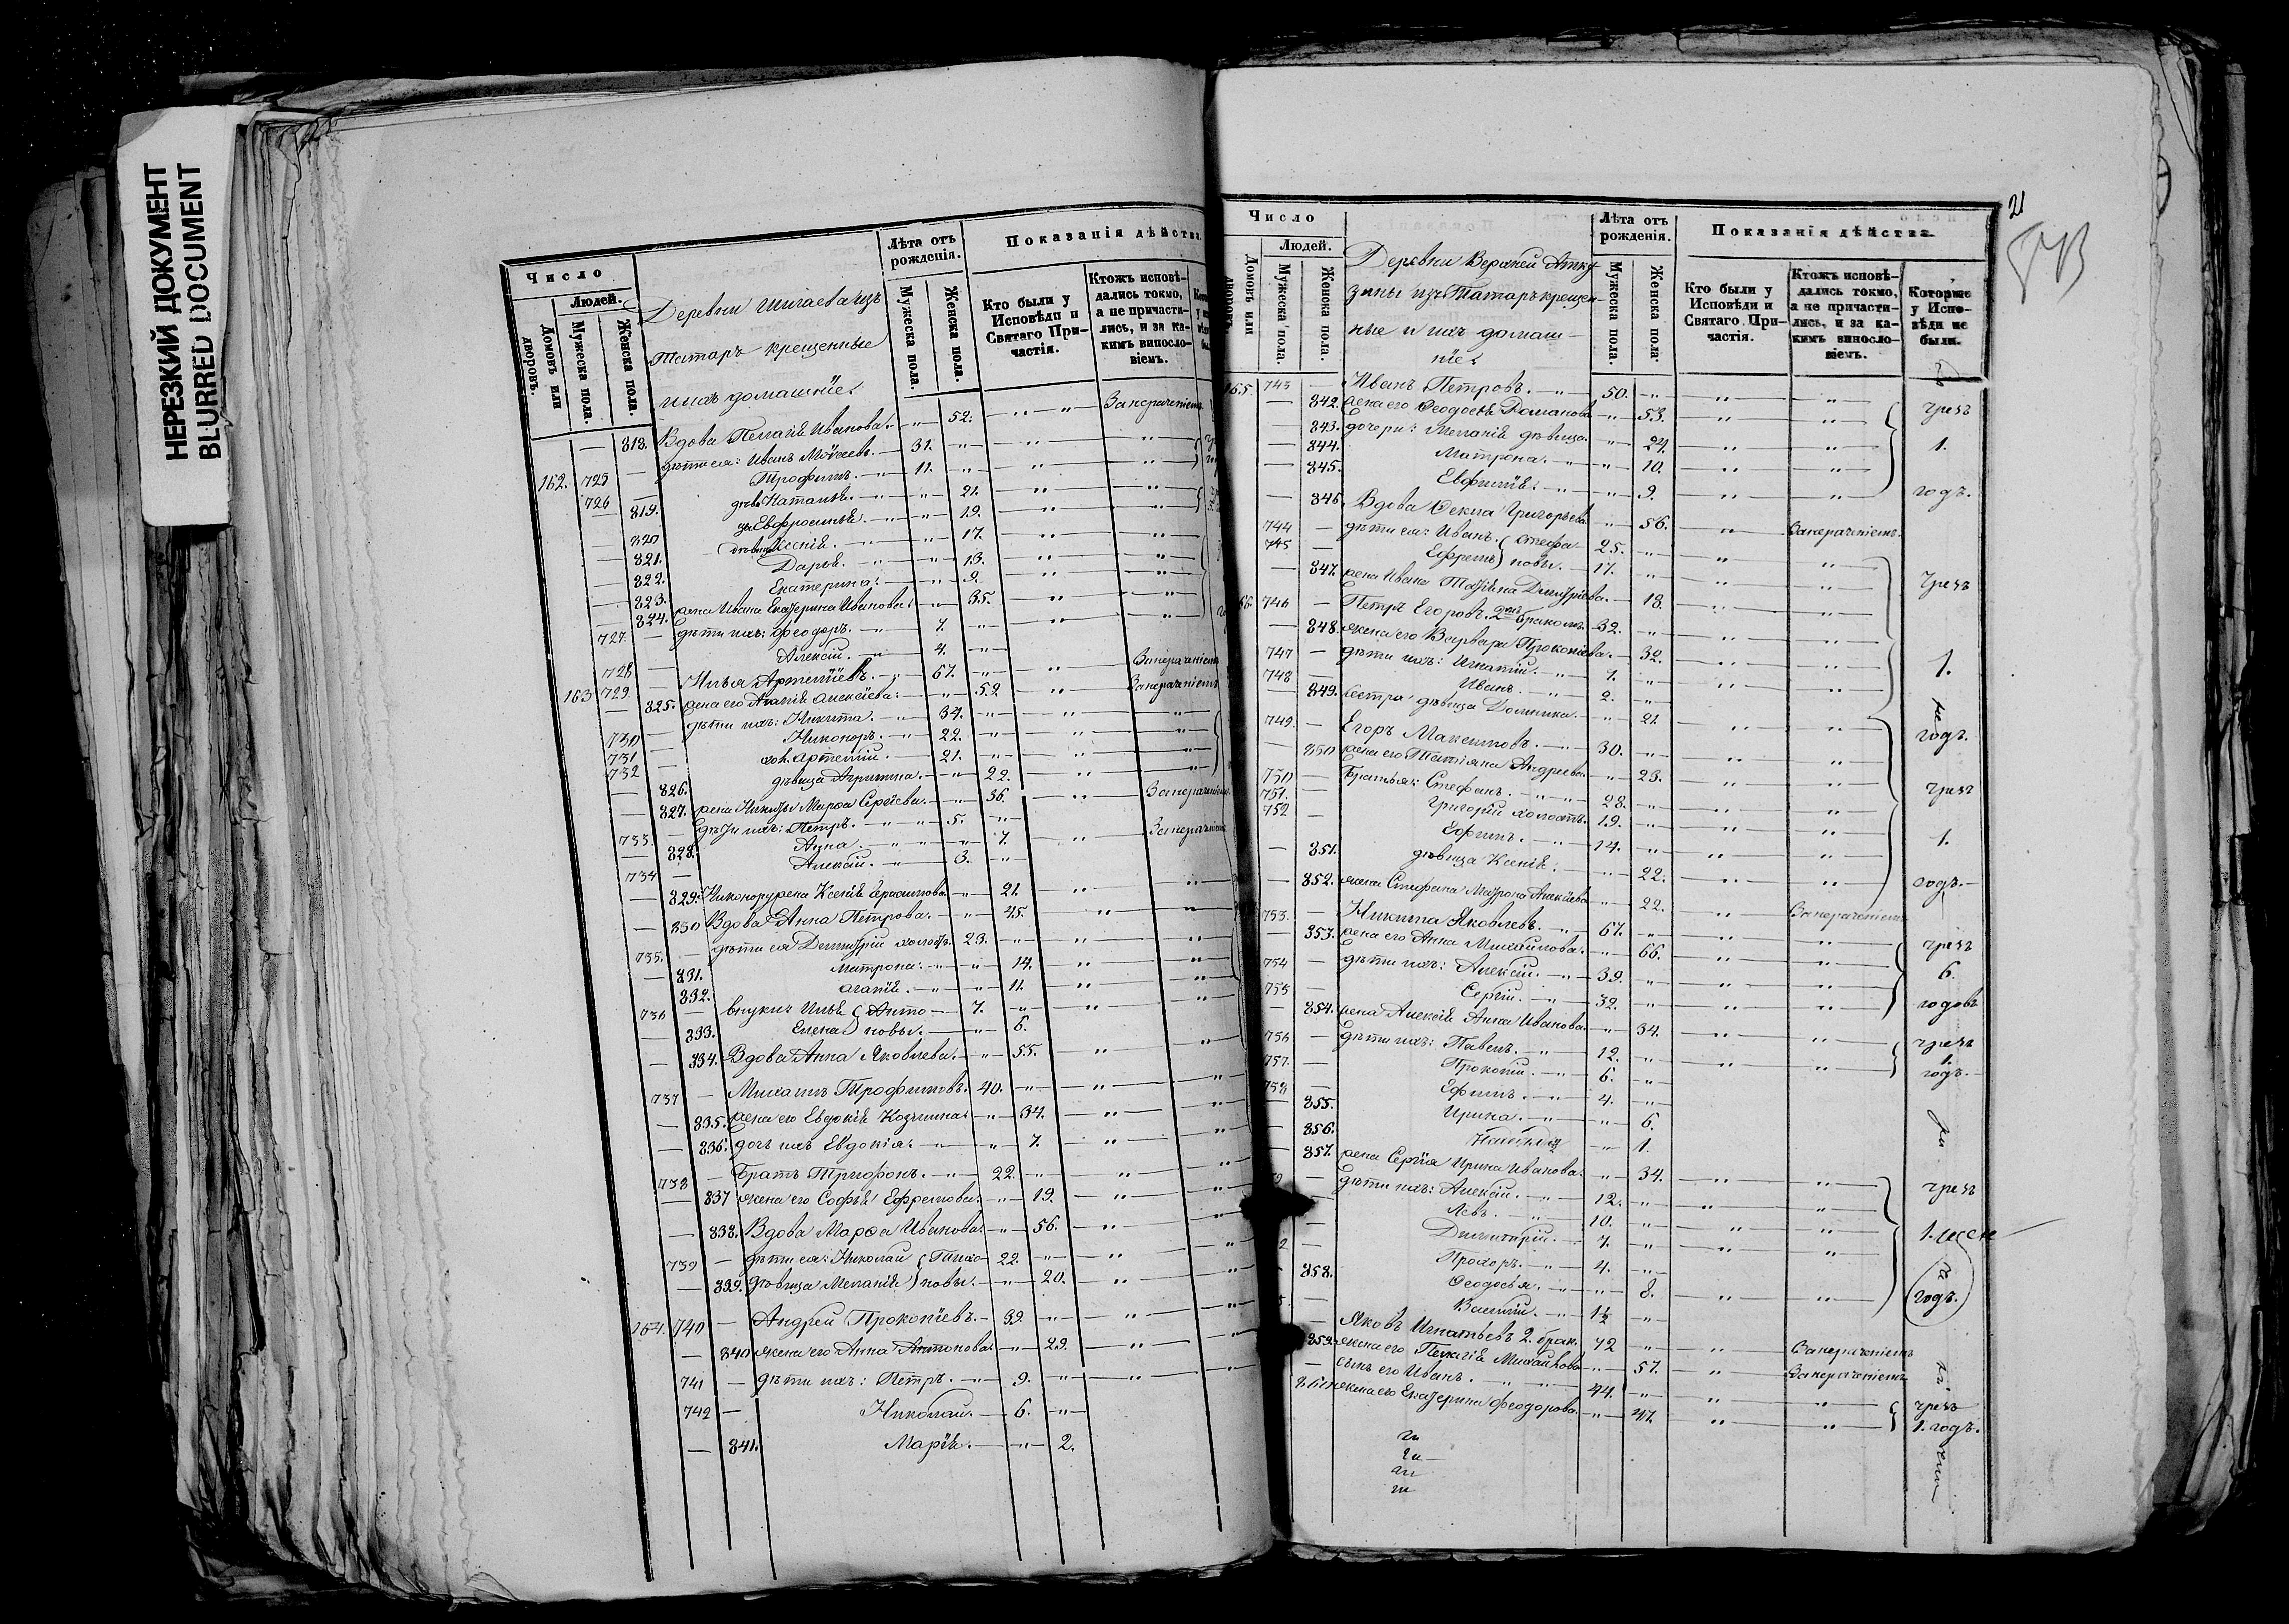 НЕРЕЗКИЙ ДОКУМЕНТ
BLURRED DOCUMENT
Число
Людей.
Домовъ или дворовъ.
Мужеска пола.
Женска пола.
Лѣта отъ рожденія.
Мужеска пола.
Женска пола.
Показанія дѣйства
Кто были у Исповѣди и Святаго Причастія.
Ктожъ исповѣдались токмо, а не причастились, и за какимъ винословіемъ.
Деревни Шигаева изъ
Татаръ крещенные
и ихъ домашніе
— 818. Вдова Пелагія Иванова. —"— 52. —"—"— Занерачениемъ
162. 725 — дѣти ея: Иванъ Моѵсеевъ. — 31. —"—
726 — Трофимъ. —"— 11. —"—
— 819. Наталья. —"— 21.
— 820 Евфросинья. —"— 19.
— 821. дѣвица Ксенія. —"— 17.
— 822. Дарья. —"— 13.
— 823. Екатерина. —"— 9.
— 824. жена Ивана Екатерина Иванова. —"— 35.
727. — дѣти ихъ: Ѳеодоръ. —"— 7.
728 — Алексій. —"— 4.
163 729. — Илья Артеміевъ. —"— 67. —"— Занерачениемъ
— 825. жена его Алексіева. —"— 52. —"— Занерачениемъ
730 — дѣти ихъ: Никита. —"— 34.
731 — Никоноръ. —"— 22.
732 — хол. Артемій. —"— 21.
— 826. дѣвица Агрипина. —"— 22.
— 827. жена Никиты Марѳа Сергіева. —"— 36. —"—
733. — дѣти ихъ: Петръ. —"— 5.
— 828. Анна. —"— 7.
734 — Алексій. —"— 3.
— 829. Никонору жена Ксенія —"— 21.
— 830 Вдова Анна Петрова. —"— 45.
735. — дѣти ея Димитрій холостъ. 23.
— 831. Матрона. —"— 14.
— 832. Агапія. —"— 11.
736 — внуки: Илья (Анто — 7.
— 833. Елена) новы. —"— 6.
— 834. Вдова Анна Яковлева. —"— 55.
737 — Михаилъ Трофимовъ. 40.
— 835. жена его Евдокія Козмина. —"— 34.
— 836. дочь ихъ Евдокія. —"— 7.
738 — Братъ Трифонъ. —"— 22.
— 837 жена его Софья Ефремова. —"— 19.
— 838. Вдова Марѳа Иванова. —"— 56.
739 — дѣти ея: Николай (Тихо — 22.
— 839. дѣвица Меланія) новы. —"— 20.
164. 740 — Андрей Прокопіевъ. — 39.
— 840 жена его Анна Антонова. —"— 29.
741 — дѣти ихъ: Петръ. —"— 9.
742 — Николай. — 6.
— 841. Марія. —"— 2.
21
Число
Людей.
Домовъ или дворовъ.
Мужеска пола.
Женска пола.
Лѣта отъ рожденія.
Мужеска пола.
Женска пола.
Показанія дѣйства
Кто были у Исповѣди и Святаго Причастія.
Ктожъ исповѣдались токмо, а не причастились, и за какимъ винословіемъ.
Которые у Исповѣди не были.
Деревни Верхней Атку-
зины изъ Татаръ крещен-
ные и ихъ домаш-
ніе
165. 743 — Иванъ Петровъ. —"— 50.
— 842. жена его Ѳеодосья —"— 53. чрезъ
843. дочери: Меланія дѣвица. —"— 24. 1.
844. Матрона. —"— 10.
— 845. Евфимія. —"— 9. годъ.
— 846 Вдова Ѳекла Григорьева —"— 56. —"— Занерачениемъ
744 — дѣти ея: Иванъ (Стефа— 25.
745 — Ефремъ) новы. — 17. чрезъ
— 847. жена Ивана Татьяна Димитріева. — 18.
66. 746 — Петръ Егоровъ. 2мъ бракомъ. 32.
— 848. жена его Варвара Прокопіева. — 32. 1.
747 — дѣти ихъ: Игнатій. —"— 7.
748 — Иванъ. —"— 2.
— 849. Сестра дѣвица Домника. —"— 21 годъ.
749. — Егоръ Максимовъ. —"— 30.
— 850 жена его Татіяна Андреева —"— 23. чрезъ
750 — Братья: Стефанъ. —"— 28.
751. — Григорій холостъ. 19. 1.
752 — Ефимъ. —"— 14.
— 851. дѣвица Ксенія. —"— 22.
— 852. жена Стефана Матрона Алексіева —"— 22. годъ.
753. — Никита Яковлевъ. —"— 67. Занерачениемъ
— 853. жена его Анна Михайлова. —"— 66. чрезъ
754 — дѣти ихъ: Алексій. —"— 39. 6.
755 — Сергій. —"— 32. годовъ
— 854. жена Алексія Анна Иванова. —"— 34.
756 — дѣти ихъ: Павелъ. —"— 12. чрезъ
757. — Прокопій. —"— 6. 1.
758 — Ефимъ. —"— 4. годъ.
— 855. Ирина. —"— 6.
— 856. —"— 1.
— 857. жена Сергія Ирина Иванова. —"— 34.
— дѣти ихъ: Алексій. —"— 12. чрезъ
— Левъ. —"— 10.
— Димитрій. —"— 7. 1.
— Прохоръ. —"— 4.
858. Ѳеодосья. —"— 8. годъ.
— Василій. —"— 1½
— Яковъ Игнатьевъ 2. брак. 72 —"— Занерачениемъ
859. жена его Пелагія Михайлова —"— 57. —"— Занерачениемъ
— сынъ его Иванъ. —"— 44. чрезъ
860 жена его Екатерина Ѳеодорова. —"— 47. 1. годъ.